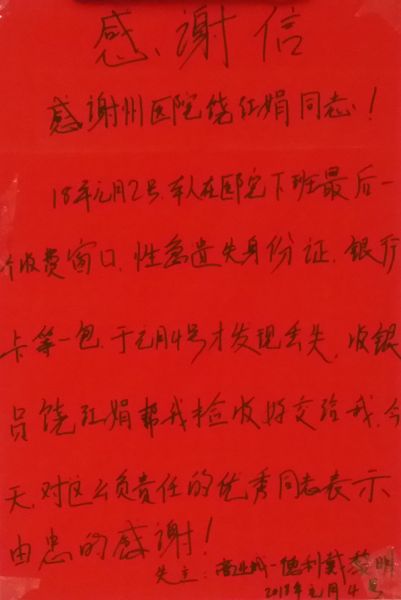 感谢信
感谢州医院饶红娟同志！
18年元月2号，本人在医院下班最后一
个收费窗口，性急遗失身份证，银行
卡等一包，于元月4号才发现丢失，收银
员饶红娟帮我捡收好交给我，今
天，对这么负责任的优秀同志表示
由忠的感谢！
失主：商业城一德利戴黎明
2018年元月4号